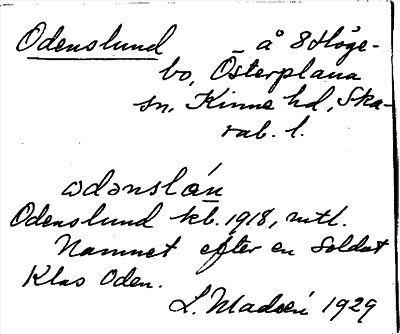 Odenslund – å 8 Höge-
bo, Österplana
sn, Kinne hd, Ska-
rab. l.
ωdənslán
Odenslund kb. 1918, mtl.
Namnet efter en soldat
Klas Oden.
L. Madsén 1929